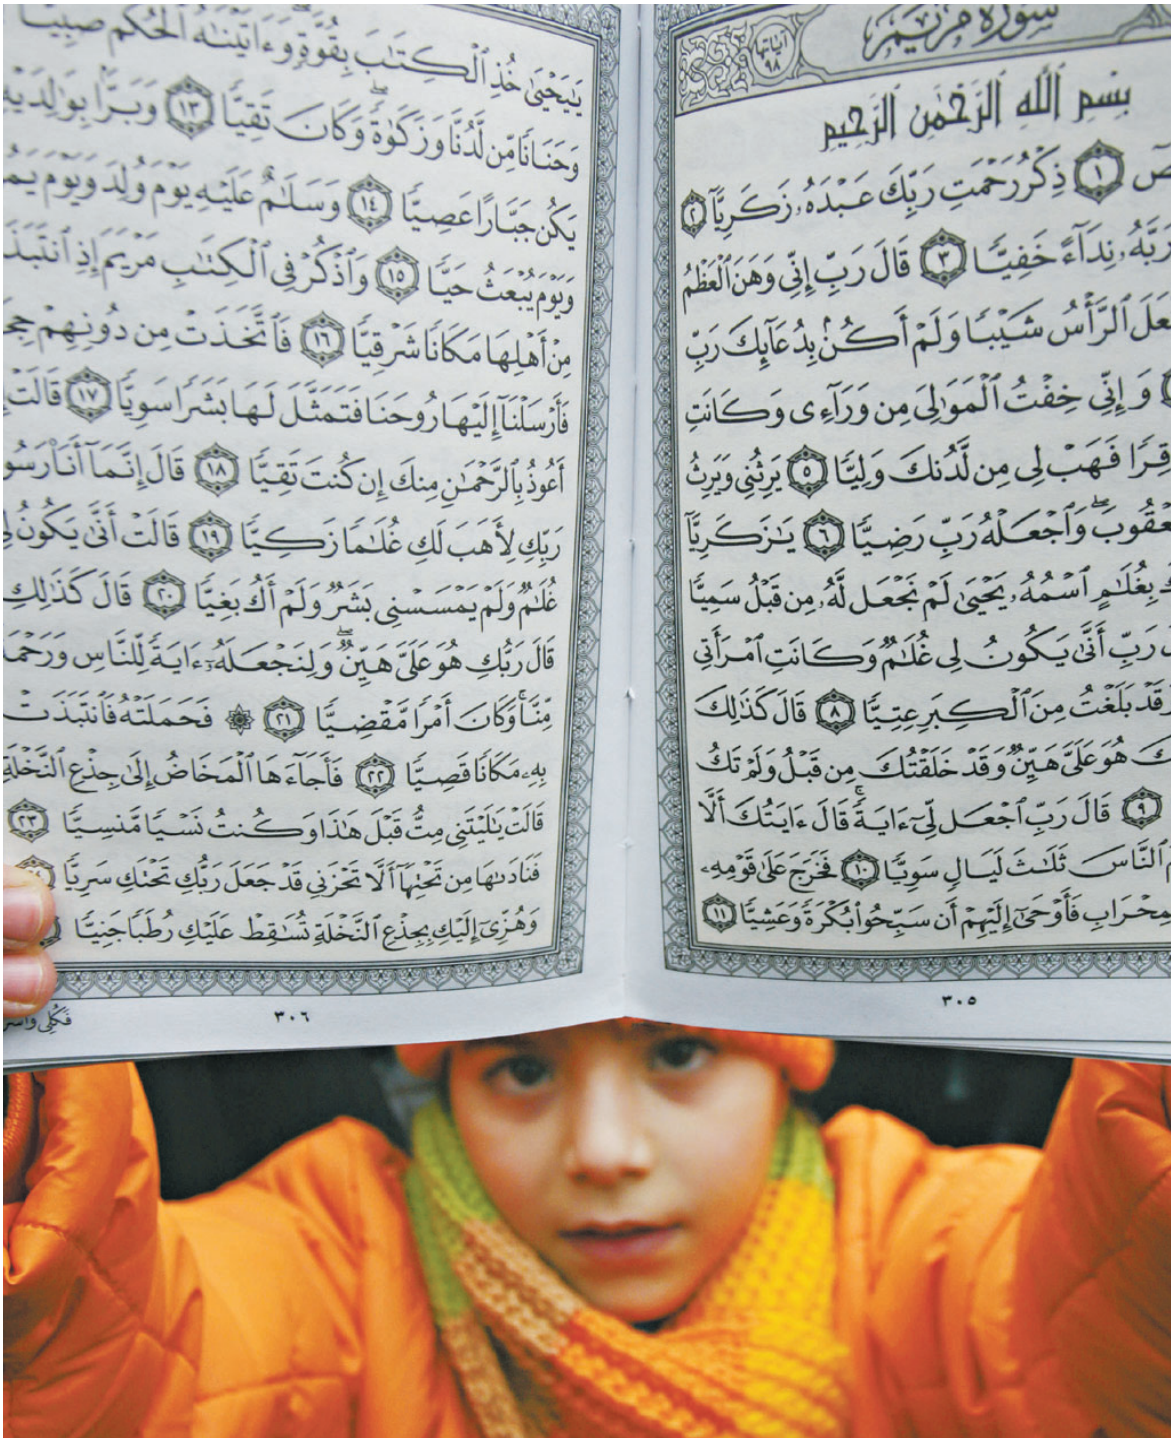 سُورَةُ مَرْيَمَ
آيَاتُهَا ٩٨
بِسْمِ اللَّهِ الرَّحْمَٰنِ الرَّحِيمِ
صٓ ١ ذِكْرُ رَحْمَتِ رَبِّكَ عَبْدَهُۥ زَكَرِيَّآ ٢
رَبَّهُۥ نِدَآءً خَفِيًّا ٣ قَالَ رَبِّ إِنِّي وَهَنَ ٱلْعَظْمُ
عَلَ ٱلرَّأْسُ شَيْبًا وَلَمْ أَكُنۢ بِدُعَآئِكَ رَبِّ
وَإِنِّي خِفْتُ ٱلْمَوَٰلِيَ مِن وَرَآءِي وَكَانَتِ
قِرًا فَهَبْ لِي مِن لَّدُنكَ وَلِيًّا ٥ يَرِثُنِي وَيَرِثُ
عْقُوبَ ۖ وَٱجْعَلْهُ رَبِّ رَضِيًّا ٦ يَٰزَكَرِيَّآ
كَ بِغُلَٰمٍ ٱسْمُهُۥ يَحْيَىٰ لَمْ نَجْعَل لَّهُۥ مِن قَبْلُ سَمِيًّا
لَ رَبِّ أَنَّىٰ يَكُونُ لِي غُلَٰمٌ وَكَانَتِ ٱمْرَأَتِي
قَدْ بَلَغْتُ مِنَ ٱلْكِبَرِ عِتِيًّا ٨ قَالَ كَذَٰلِكَ
كَ هُوَ عَلَيَّ هَيِّنٌ وَقَدْ خَلَقْتُكَ مِن قَبْلُ وَلَمْ تَكُ
٩ قَالَ رَبِّ ٱجْعَل لِّيٓ ءَايَةً ۚ قَالَ ءَايَتُكَ أَلَّا
ٱلنَّاسَ ثَلَٰثَ لَيَالٍ سَوِيًّا ١٠ فَخَرَجَ عَلَىٰ قَوْمِهِۦ
مِحْرَابِ فَأَوْحَىٰٓ إِلَيْهِمْ أَن سَبِّحُوا۟ بُكْرَةً وَعَشِيًّا ١١
٣٠٥
يَٰيَحْيَىٰ خُذِ ٱلْكِتَٰبَ بِقُوَّةٍ ۖ وَءَاتَيْنَٰهُ ٱلْحُكْمَ صَبِيًّا
وَحَنَانًا مِّن لَّدُنَّا وَزَكَوٰةً ۖ وَكَانَ تَقِيًّا ١٣ وَبَرًّۢا بِوَٰلِدَيْهِ
يَكُن جَبَّارًا عَصِيًّا ١٤ وَسَلَٰمٌ عَلَيْهِ يَوْمَ وُلِدَ وَيَوْمَ يَمُ
وَيَوْمَ يُبْعَثُ حَيًّا ١٥ وَٱذْكُرْ فِي ٱلْكِتَٰبِ مَرْيَمَ إِذِ ٱنتَبَذَ
مِنْ أَهْلِهَا مَكَانًا شَرْقِيًّا ١٦ فَٱتَّخَذَتْ مِن دُونِهِمْ حِجَ
فَأَرْسَلْنَآ إِلَيْهَا رُوحَنَا فَتَمَثَّلَ لَهَا بَشَرًا سَوِيًّا ١٧ قَالَتْ
أَعُوذُ بِٱلرَّحْمَٰنِ مِنكَ إِن كُنتَ تَقِيًّا ١٨ قَالَ إِنَّمَآ أَنَا۠ رَسُو
رَبِّكِ لِأَهَبَ لَكِ غُلَٰمًا زَكِيًّا ١٩ قَالَتْ أَنَّىٰ يَكُونُ لِي
غُلَٰمٌ وَلَمْ يَمْسَسْنِي بَشَرٌ وَلَمْ أَكُ بَغِيًّا ٢٠ قَالَ كَذَٰلِكِ
قَالَ رَبُّكِ هُوَ عَلَيَّ هَيِّنٌ ۖ وَلِنَجْعَلَهُۥٓ ءَايَةً لِّلنَّاسِ وَرَحْمَ
مِّنَّا ۚ وَكَانَ أَمْرًا مَّقْضِيًّا ٢١ ۞ فَحَمَلَتْهُ فَٱنتَبَذَتْ
بِهِۦ مَكَانًا قَصِيًّا ٢٢ فَأَجَآءَهَا ٱلْمَخَاضُ إِلَىٰ جِذْعِ ٱلنَّخْلَةِ
قَالَتْ يَٰلَيْتَنِي مِتُّ قَبْلَ هَٰذَا وَكُنتُ نَسْيًا مَّنسِيًّا ٢٣
فَنَادَىٰهَا مِن تَحْتِهَآ أَلَّا تَحْزَنِي قَدْ جَعَلَ رَبُّكِ تَحْتَكِ سَرِيًّا
وَهُزِّيٓ إِلَيْكِ بِجِذْعِ ٱلنَّخْلَةِ تُسَٰقِطْ عَلَيْكِ رُطَبًا جَنِيًّا
فَكُلِي وَاشْرَ
٣٠٦